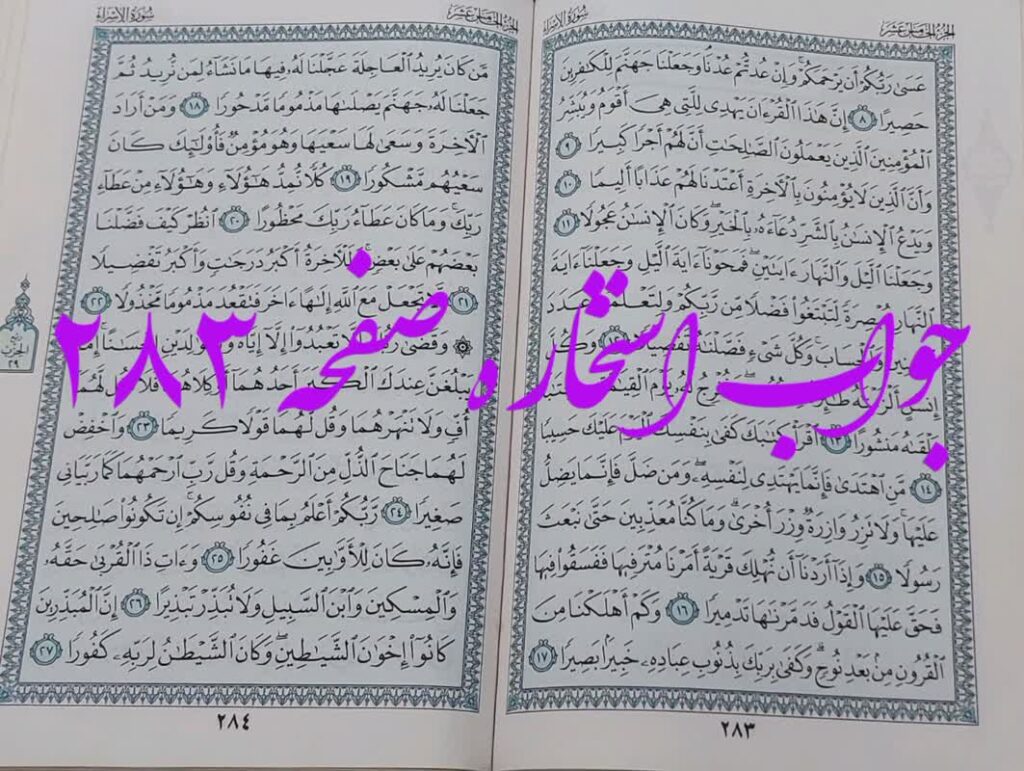 الجزء الخامس عشر
سورة الإسراء
عَسَىٰ رَبُّكُمْ أَن يَرْحَمَكُمْ ۚ وَإِنْ عُدتُّمْ عُدْنَا ۘ وَجَعَلْنَا جَهَنَّمَ لِلْكَٰفِرِينَ
حَصِيرًا ٨ إِنَّ هَٰذَا ٱلْقُرْءَانَ يَهْدِى لِلَّتِى هِىَ أَقْوَمُ وَيُبَشِّرُ
ٱلْمُؤْمِنِينَ ٱلَّذِينَ يَعْمَلُونَ ٱلصَّٰلِحَٰتِ أَنَّ لَهُمْ أَجْرًا كَبِيرًا ٩
وَأَنَّ ٱلَّذِينَ لَا يُؤْمِنُونَ بِٱلْءَاخِرَةِ أَعْتَدْنَا لَهُمْ عَذَابًا أَلِيمًا ١٠
وَيَدْعُ ٱلْإِنسَٰنُ بِٱلشَّرِّ دُعَآءَهُۥ بِٱلْخَيْرِ ۖ وَكَانَ ٱلْإِنسَٰنُ عَجُولًا ١١
وَجَعَلْنَا ٱلَّيْلَ وَٱلنَّهَارَ ءَايَتَيْنِ ۖ فَمَحَوْنَآ ءَايَةَ ٱلَّيْلِ وَجَعَلْنَآ ءَايَةَ
ٱلنَّهَارِ مُبْصِرَةً لِّتَبْتَغُوا۟ فَضْلًا مِّن رَّبِّكُمْ وَلِتَعْلَمُوا۟ عَدَدَ
ٱلسِّنِينَ وَٱلْحِسَابَ ۚ وَكُلَّ شَىْءٍ فَصَّلْنَٰهُ تَفْصِيلًا ١٢ وَكُلَّ
إِنسَٰنٍ أَلْزَمْنَٰهُ طَٰٓئِرَهُۥ وَنُخْرِجُ لَهُۥ يَوْمَ ٱلْقِيَٰمَةِ
يَلْقَىٰهُ مَنشُورًا ١٣ ٱقْرَأْ كِتَٰبَكَ كَفَىٰ بِنَفْسِكَ ٱلْيَوْمَ عَلَيْكَ حَسِيبًا
١٤ مَّنِ ٱهْتَدَىٰ فَإِنَّمَا يَهْتَدِى لِنَفْسِهِۦ ۖ وَمَن ضَلَّ فَإِنَّمَا يَضِلُّ
عَلَيْهَا ۚ وَلَا تَزِرُ وَازِرَةٌ وِزْرَ أُخْرَىٰ ۗ وَمَا كُنَّا مُعَذِّبِينَ حَتَّىٰ نَبْعَثَ
رَسُولًا ١٥ وَإِذَآ أَرَدْنَآ أَن نُّهْلِكَ قَرْيَةً أَمَرْنَا مُتْرَفِيهَا فَفَسَقُوا۟ فِيهَا
فَحَقَّ عَلَيْهَا ٱلْقَوْلُ فَدَمَّرْنَٰهَا تَدْمِيرًا ١٦ وَكَمْ أَهْلَكْنَا مِنَ
ٱلْقُرُونِ مِنۢ بَعْدِ نُوحٍ ۗ وَكَفَىٰ بِرَبِّكَ بِذُنُوبِ عِبَادِهِۦ خَبِيرًۢا بَصِيرًا ١٧
٢٨٣
الجزء الخامس عشر
سورة الإسراء
مَّن كَانَ يُرِيدُ ٱلْعَاجِلَةَ عَجَّلْنَا لَهُۥ فِيهَا مَا نَشَآءُ لِمَن نُّرِيدُ ثُمَّ
جَعَلْنَا لَهُۥ جَهَنَّمَ يَصْلَىٰهَا مَذْمُومًا مَّدْحُورًا ١٨ وَمَنْ أَرَادَ
ٱلْءَاخِرَةَ وَسَعَىٰ لَهَا سَعْيَهَا وَهُوَ مُؤْمِنٌ فَأُو۟لَٰٓئِكَ كَانَ
سَعْيُهُم مَّشْكُورًا ١٩ كُلًّا نُّمِدُّ هَٰٓؤُلَآءِ وَهَٰٓؤُلَآءِ مِنْ عَطَآءِ
رَبِّكَ ۚ وَمَا كَانَ عَطَآءُ رَبِّكَ مَحْظُورًا ٢٠ ٱنظُرْ كَيْفَ فَضَّلْنَا
بَعْضَهُمْ عَلَىٰ بَعْضٍ ۚ وَلَلْءَاخِرَةُ أَكْبَرُ دَرَجَٰتٍ وَأَكْبَرُ تَفْضِيلًا
٢١ لَّا تَجْعَلْ مَعَ ٱللَّهِ إِلَٰهًا ءَاخَرَ فَتَقْعُدَ مَذْمُومًا مَّخْذُولًا ٢٢
۞ وَقَضَىٰ رَبُّكَ أَلَّا تَعْبُدُوٓا۟ إِلَّآ إِيَّاهُ وَبِٱلْوَٰلِدَيْنِ إِحْسَٰنًا ۚ إِمَّا
يَبْلُغَنَّ عِندَكَ ٱلْكِبَرَ أَحَدُهُمَآ أَوْ كِلَاهُمَا فَلَا تَقُل لَّهُمَآ
أُفٍّ وَلَا تَنْهَرْهُمَا وَقُل لَّهُمَا قَوْلًا كَرِيمًا ٢٣ وَٱخْفِضْ
لَهُمَا جَنَاحَ ٱلذُّلِّ مِنَ ٱلرَّحْمَةِ وَقُل رَّبِّ ٱرْحَمْهُمَا كَمَا رَبَّيَانِى
صَغِيرًا ٢٤ رَّبُّكُمْ أَعْلَمُ بِمَا فِى نُفُوسِكُمْ ۚ إِن تَكُونُوا۟ صَٰلِحِينَ
فَإِنَّهُۥ كَانَ لِلْأَوَّٰبِينَ غَفُورًا ٢٥ وَءَاتِ ذَا ٱلْقُرْبَىٰ حَقَّهُۥ
وَٱلْمِسْكِينَ وَٱبْنَ ٱلسَّبِيلِ وَلَا تُبَذِّرْ تَبْذِيرًا ٢٦ إِنَّ ٱلْمُبَذِّرِينَ
كَانُوٓا۟ إِخْوَٰنَ ٱلشَّيَٰطِينِ ۖ وَكَانَ ٱلشَّيْطَٰنُ لِرَبِّهِۦ كَفُورًا ٢٧
٢٨٤
الحزب
٢٩
جواب استخاره صفحه ٢٨٣